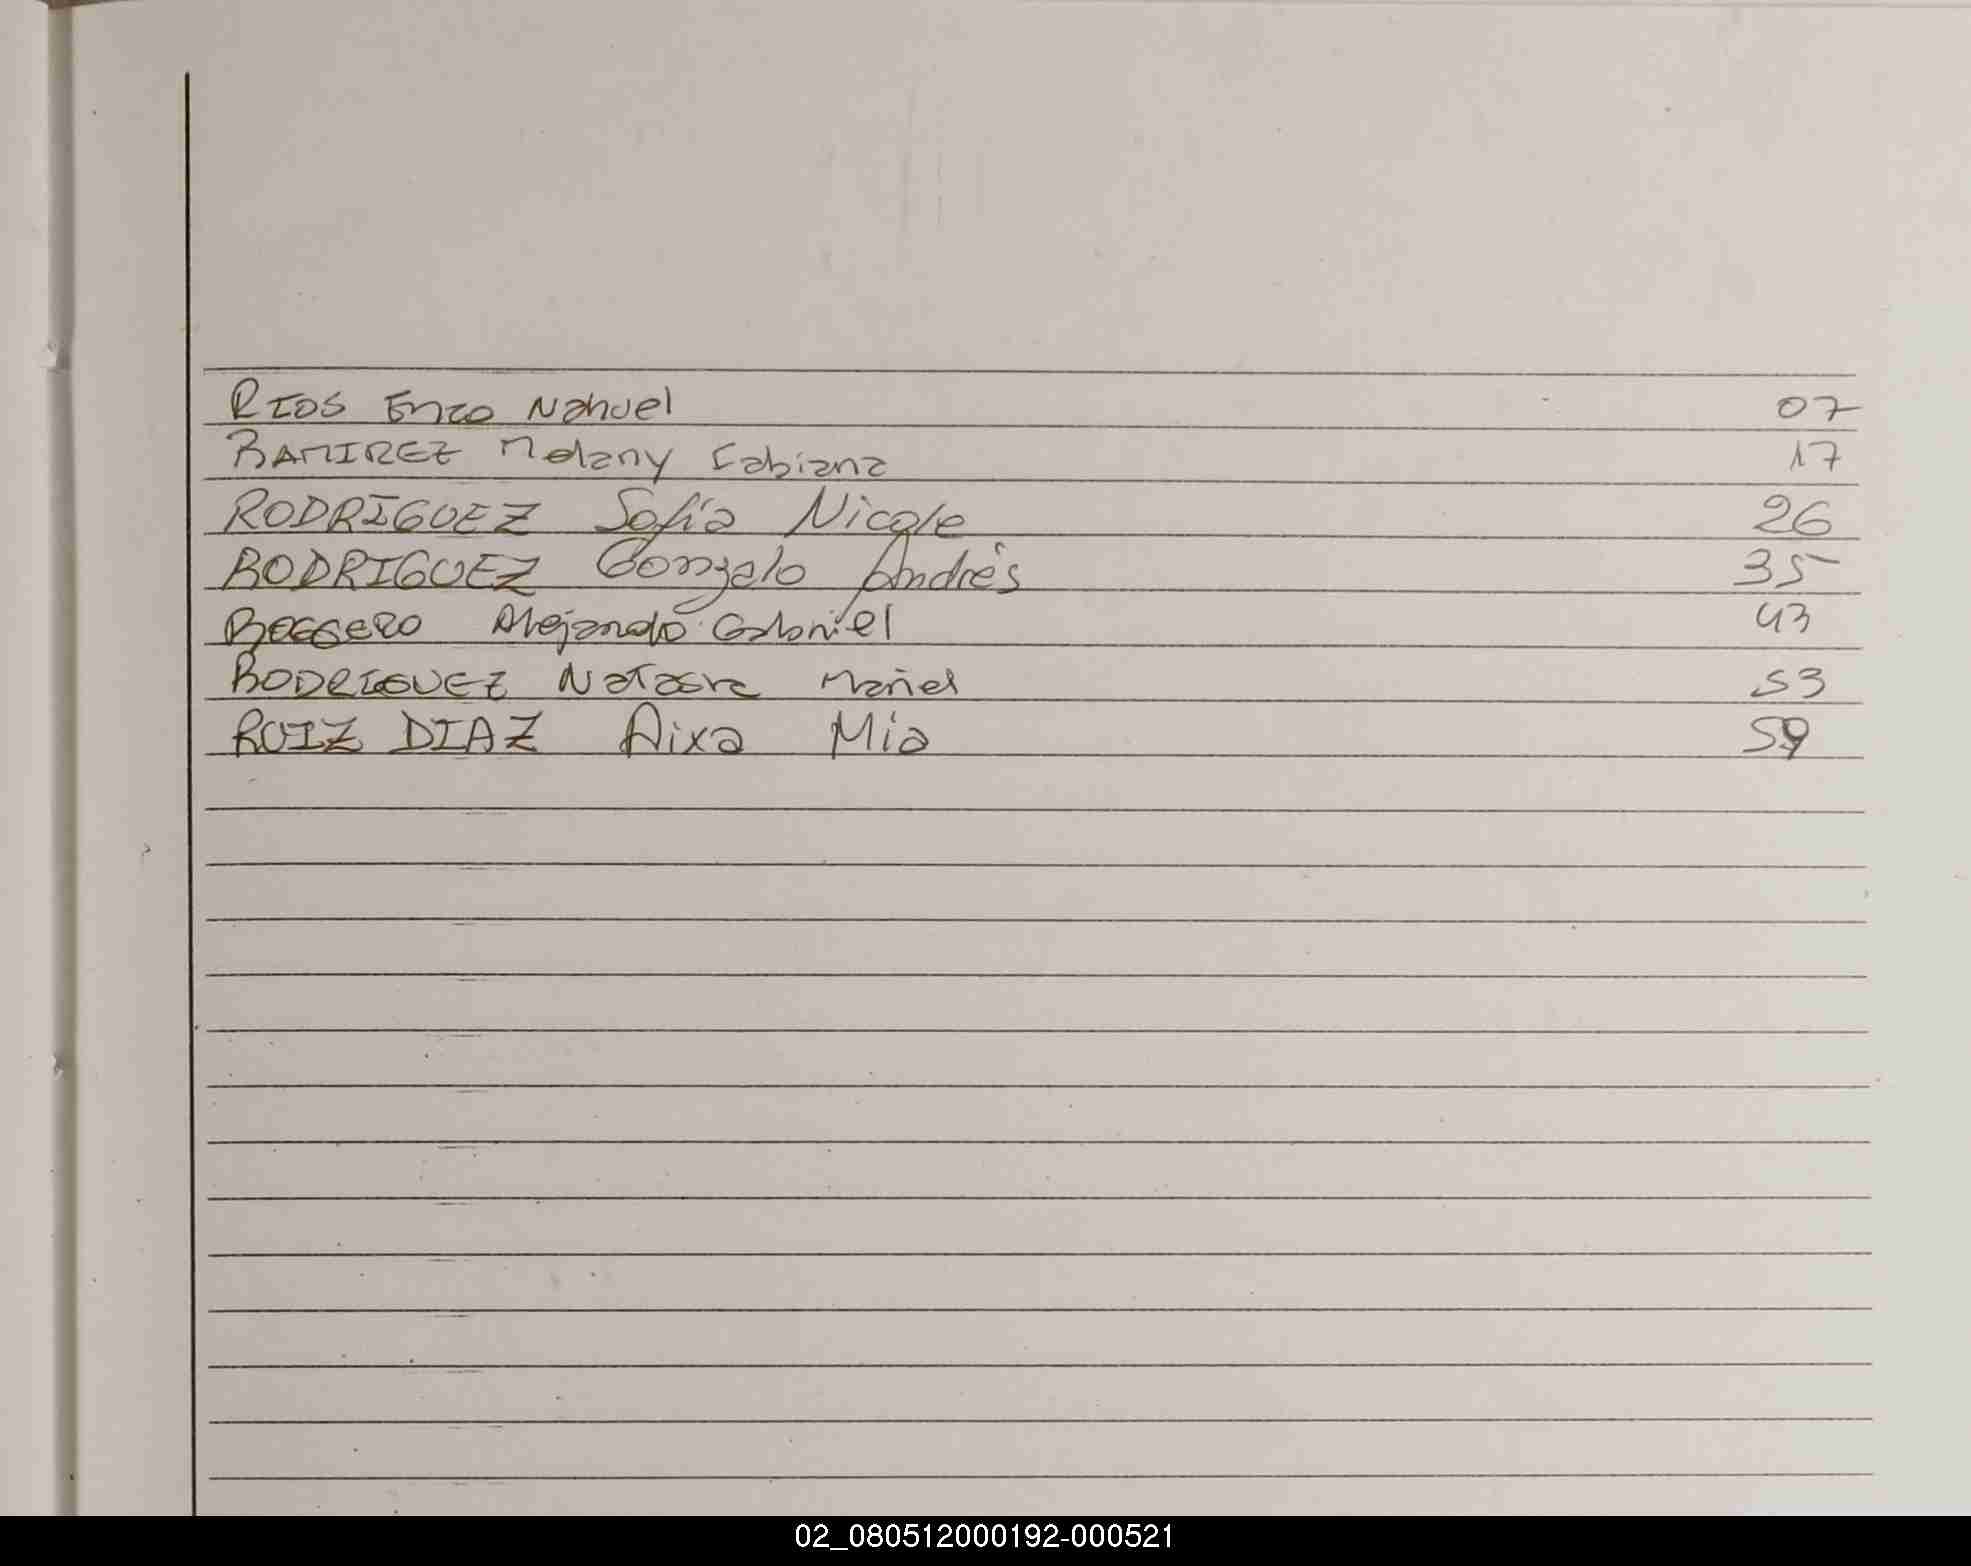 RIOS Enzo Nahuel 07
RAMIREZ Melany Fabiana 17
RODRIGUEZ Sofía Nicole 26
RODRIGUEZ Gonzalo Andrés 35
Alejandro Gabriel 43
RODRIGUEZ 53
RUIZ DIAZ Aixa Mia 59
02_080512000192-000521